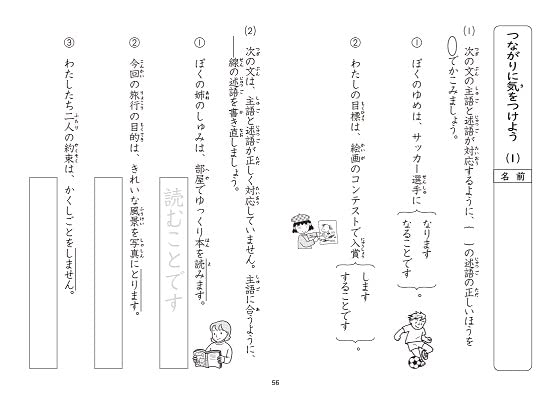 つながりに気をつけよう (1)
名前
(1) 次の文の主語と述語が対応するように、( )の述語の正しいほうを
◯でかこみましょう。
① ぼくのゆめは、サッカー選手に
なります
なることです
。
② わたしの目標は、絵画のコンテストで入賞
します
することです
。
(2) 次の文は、主語と述語が正しく対応していません。主語に合うように、
――線の述語を書き直しましょう。
① ぼくの姉のしゅみは、部屋でゆっくり本を読みます。
読むことです
② 今回の旅行の目的は、きれいな風景を写真にとります。
③ わたしたち二人の約束は、かくしごとをしません。
56